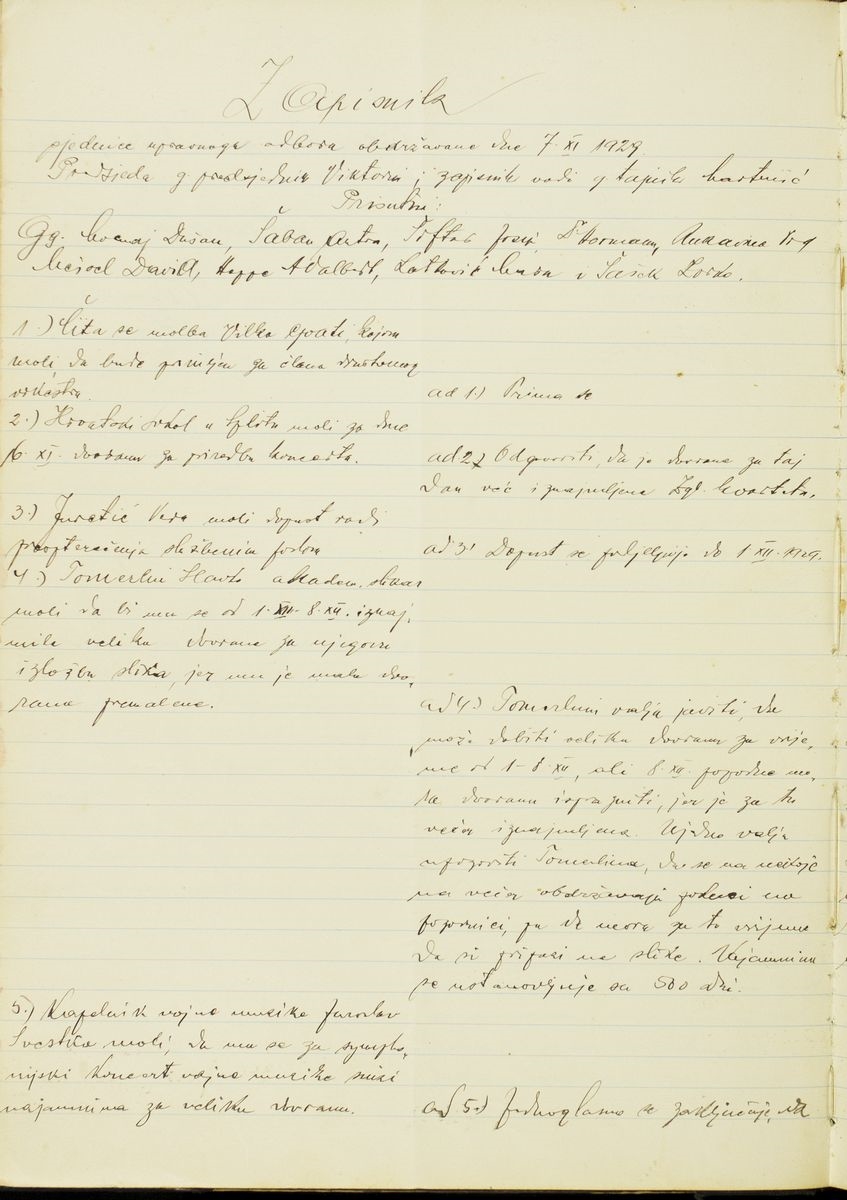 Zapisnik
sjednice upravnoga odbora obdržavane dne 7. XI 1929
Predsjeda g. predsjednik Viktorin i zapisnik vodi g tajnik
Prisutni:
Gg. Dušan, Šaban Antun, Šiftar Josip, Dr Hermann,
David, Hoppe Adalbert, i Šašek
1.) Čita se molba Vilka kojom
moli, da bude primljen za člana društvenog
orkestra.
2.) Hrvatski sokol u Splitu moli za dne
6. XI. dvoranu za priredbu koncerta.
3.) Juretić Vera moli dopust radi
preopterećenja službenim poslom
4.) Tomerlin Slavko akadem. slikar
moli da bi mu se od 1. XII - 8. XII. iznaj,
mila velika dvorana za njegovu
izložbu slika, jer mu je mala dvo,
rana premalena.
5.) Kapelnik vojne muzike Jaroslav
moli, da mu se za sympho,
nijski koncert vojne muzike snizi
najamnina za veliku dvoranu.
ad 1.) Prima se
ad 2.) Odgovoriti, da je dvorana za taj
dan već iznajmljena Zgb. kvartetu.
ad 3' Dopust se podjeljuje do 1 XII. 1929.
ad 4.) Tomerlinu valja javiti, da
može dobiti veliku dvoranu za vrije,
me od 1 - 8 XII, ali 8. XII. popodne mo,
ra dvoranu isprazniti, jer je za tu
večer iznajmljena. Ujedno valja
upozoriti Tomerlina, da se na
na večer obdržavaju pokusi na
pozornici, pa da mora za to vrijeme
da si pripazi na slike. Najamnina
se ustanovljuje sa 500 din.
ad 5.) Jednoglasno se zaključuje, da